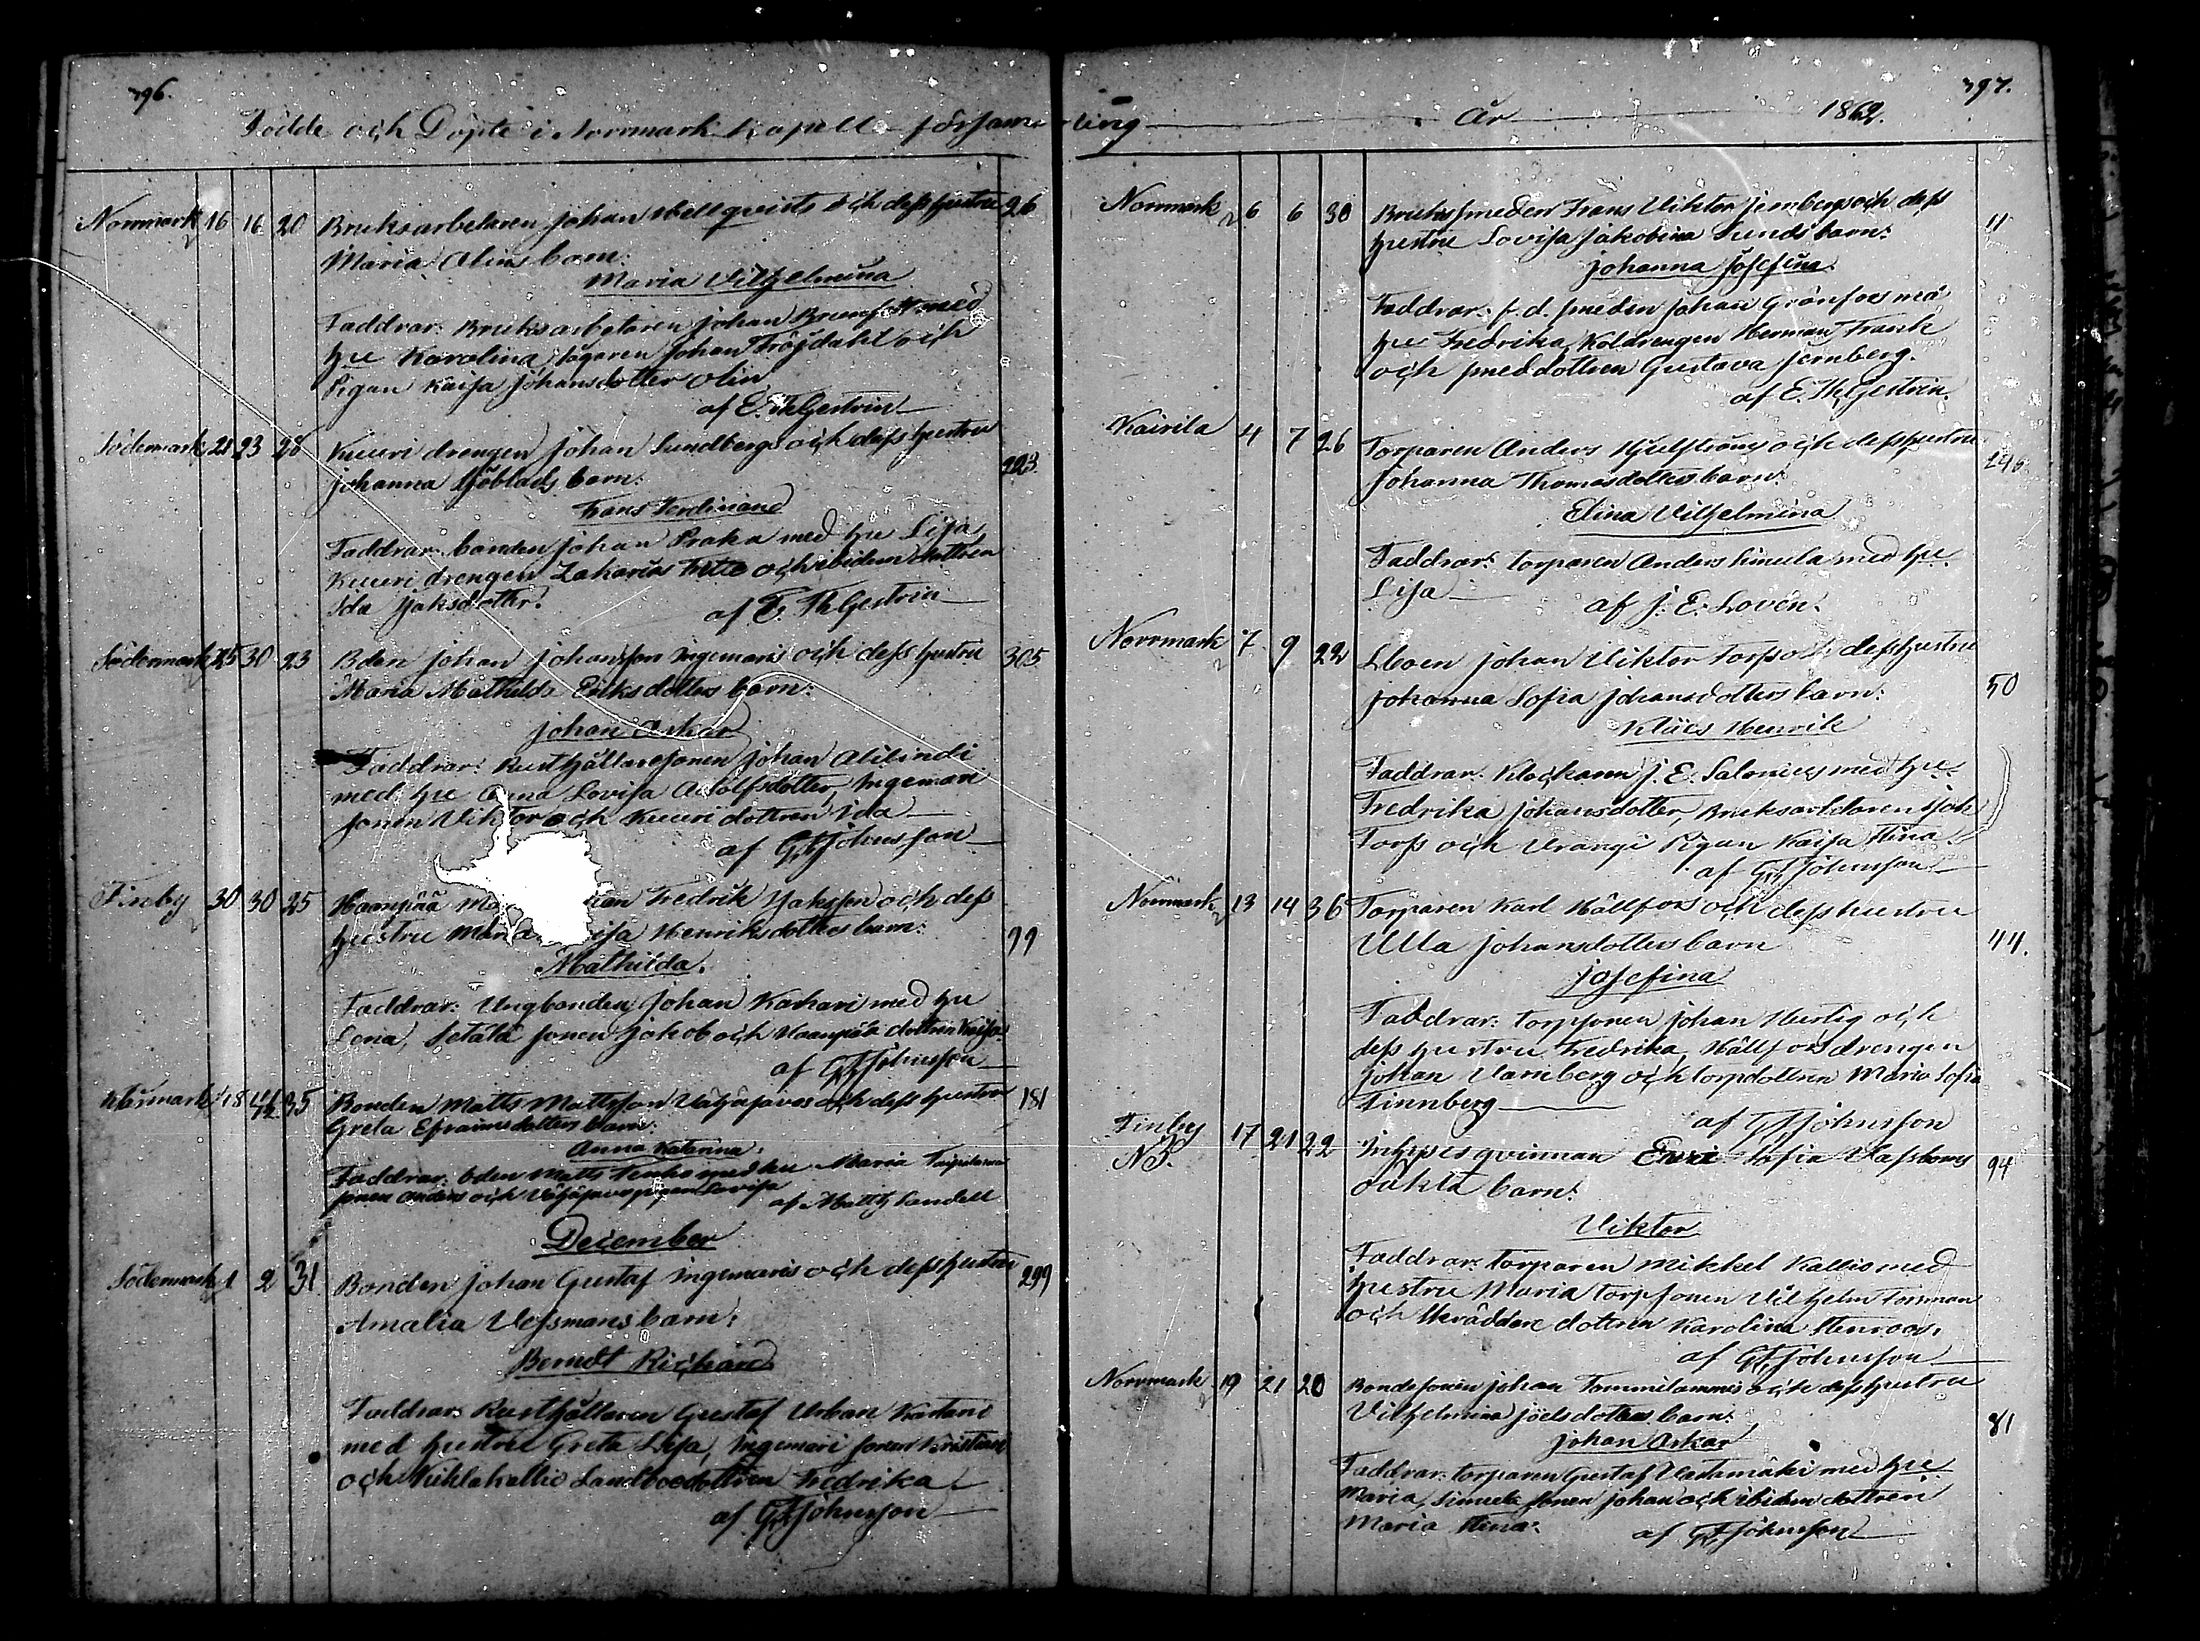 396.
Födde och Döpte i Norrmark Kapell försam-
Norrmark 16 16 20 Bruksarbetaren Johan Hellqvists och dess hustru 26
Maria Olins barn:
Maria Vilhelmina
Faddrar: Bruksarbetaren Johan med
hu Karolina, sågaren Johan Tröjdahl och
Pigan Kaisa Johansdotter Olin
af E. Th Gestrin
Södermark 21 23 28 Kuuri drengen Johan Sundbergs och dess hustru
Johanna Sjöblads barn: 223
Frans Ferdinand
Faddrar: bonden Johan Praka med hu Lisa,
Kuuri drengen Zakarias och ibidem dottren
Ida Isaksdotter.
af E. Th Gestrin
Södermark 25 30 23 Bden Johan Johansson Ingemaris och dess hustru 305
Maria Mathilda Eriksdotters barn:
Johan Oskar
Faddrar: Rusthållaresonen Johan Alilindi
med hu Anna Lovisa Adolfsdotter, Ingemari
sonen Viktor och Kuuri dottren Ida
af G F Johnsson
Finby 30 30 25 Haanpää Fredrik Isaksson och dess
hustru Maria Henriksdotters barn: 99
Mathilda.
Faddrar: Ungbonden Johan Karhari med hu
Lena, Setälä sonen Jakob och Haanpää dottren Kaisa
af G F Johnsson
35 Bonden Matts Mattsson och dess hustru 181
Greta Efraimsdotters barn:
Anna Katarina.
Faddrar: bden Matts med hu Maria
sonen Anders och pigan Lovisa
af Matth Sandell
December
Södermark 1 2 31 Bonden Johan Gustaf Ingemaris och dess hustru 299
Amalia Vessmans barn:
Berndt Richard
Faddrar: Rusthållaren Gustaf Urban Kartano
med hustru Greta Lisa, Ingemari sonen Kristian
och Kiklakallio Landboedottren Fredrika
af G F Johnsson
397.
ling År 1862.
Norrmark 6 6 30 Brukssmeden Frans Viktor Jernbergs och dess
hustru Lovisa Jakobina Sunds barn: 11
Johanna Josefina
Faddrar: f. d. smeden Johan Grönfors må
hu Fredrika, Koldrengen Herman Frank
och smeddottren Gustava Jernberg.
af E. Th Gestrin.
Kairila 4 7 26 Torparen Anders Hjelströms och dess hustru
Johanna Thomasdotters barn: 246
Elina Vilhelmina
Faddrar: torparen Anders Simula med hu
Lisa
af J. E. Lovén.
Norrmark 7 9 22 Lboen Johan Viktor Torps och dess hustru
Johanna Sofia Johansdotters barn: 50
Klaes Henrik
Faddrar: Klockaren J. E. Salonius med hu
Fredrika Johansdotter, Bruksarbetaren Isak
Torp och Vrangi Pigan Kaisa Stina.
af G F Johnsson
Norrmark 13 14 36 Torparen Karl Hällfors och dess hustru
Ulla Johansdotters barn 44.
Josefina
Faddrar: torpsonen Johan Hertig och
dess hustru Fredrika, Hällfors drengen
Johan Varnberg och torpdottren Maria Sofia
Finnberg
af G F Johnsson
Finby 17 21 22 Inhyses qvinnan Sofia Vassboms 94
NB. oäkta barn:
Viktor
Faddrar: torparen Mikkel Kallio med
hustru Maria torpsonen Vilhelm Forsman
och Skräddare dottren Karolina Stenroos.
af G F Johnsson
Norrmark 19 21 20 Bondesonen Johan Tommilannes och dess hustru
Vilhelmina Joelsdotters barn: 81
Johan Oskar
Faddrar: torparen Gustaf Vastamäki med hu
Maria, Simula sonen Johan och ibidem dottren
Maria Stina.
af G F Johnsson